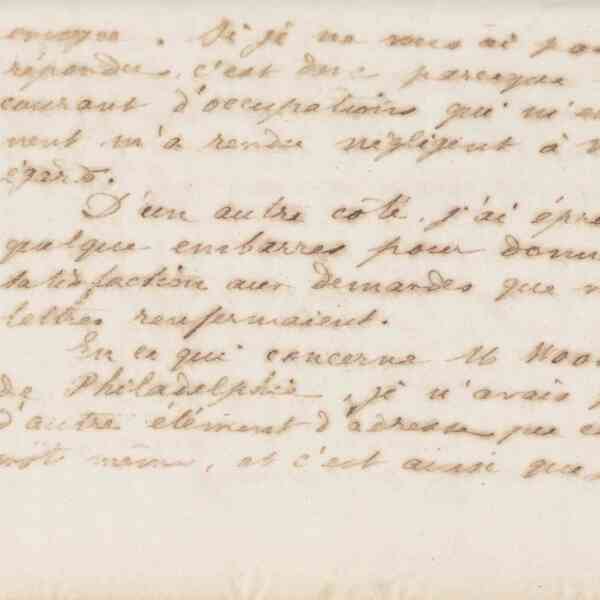 . Si je ne vous ai pas
répondu, c'est donc parceque
courant d'occupations qui m'en
nent m'a rendu négligent à v
égard.
D'un autre côté, j'ai épro
quelque embarras pour donn
satisfaction aux demandes que v
lettres renfermaient.
En ce qui concerne M Woo
de Philadelphie, je n'avais p
d'autre élément d'adresse que ce
mot même, et c'est ainsi que